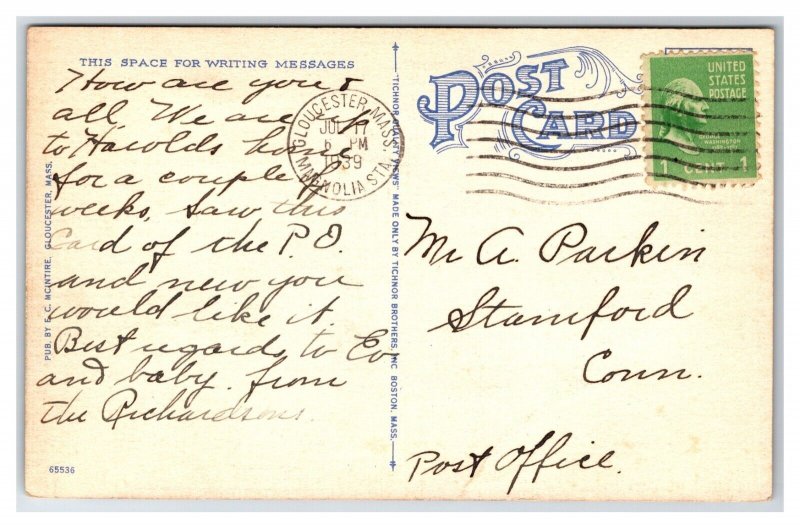 THIS SPACE FOR WRITING MESSAGES
How are you &
all. We are
to Harolds home
for a couple of
weeks, saw this
Card of the P.O.
and new you
would like it.
Best regards to Ev
and baby. from
the Richardsons.
65536
PUB. BY E. C. MCINTIRE, GLOUCESTER, MASS.
"TICHNOR QUALITY VIEWS" MADE ONLY BY TICHNOR BROTHERS, INC. BOSTON, MASS.
POST CARD
GLOUCESTER, MASS.
JUL 17
6 PM
1939
MAGNOLIA STA.
UNITED
STATES
POSTAGE
GEORGE
WASHINGTON
1 CENT 1
Mr A. Parkin
Stamford
Conn.
Post Office.